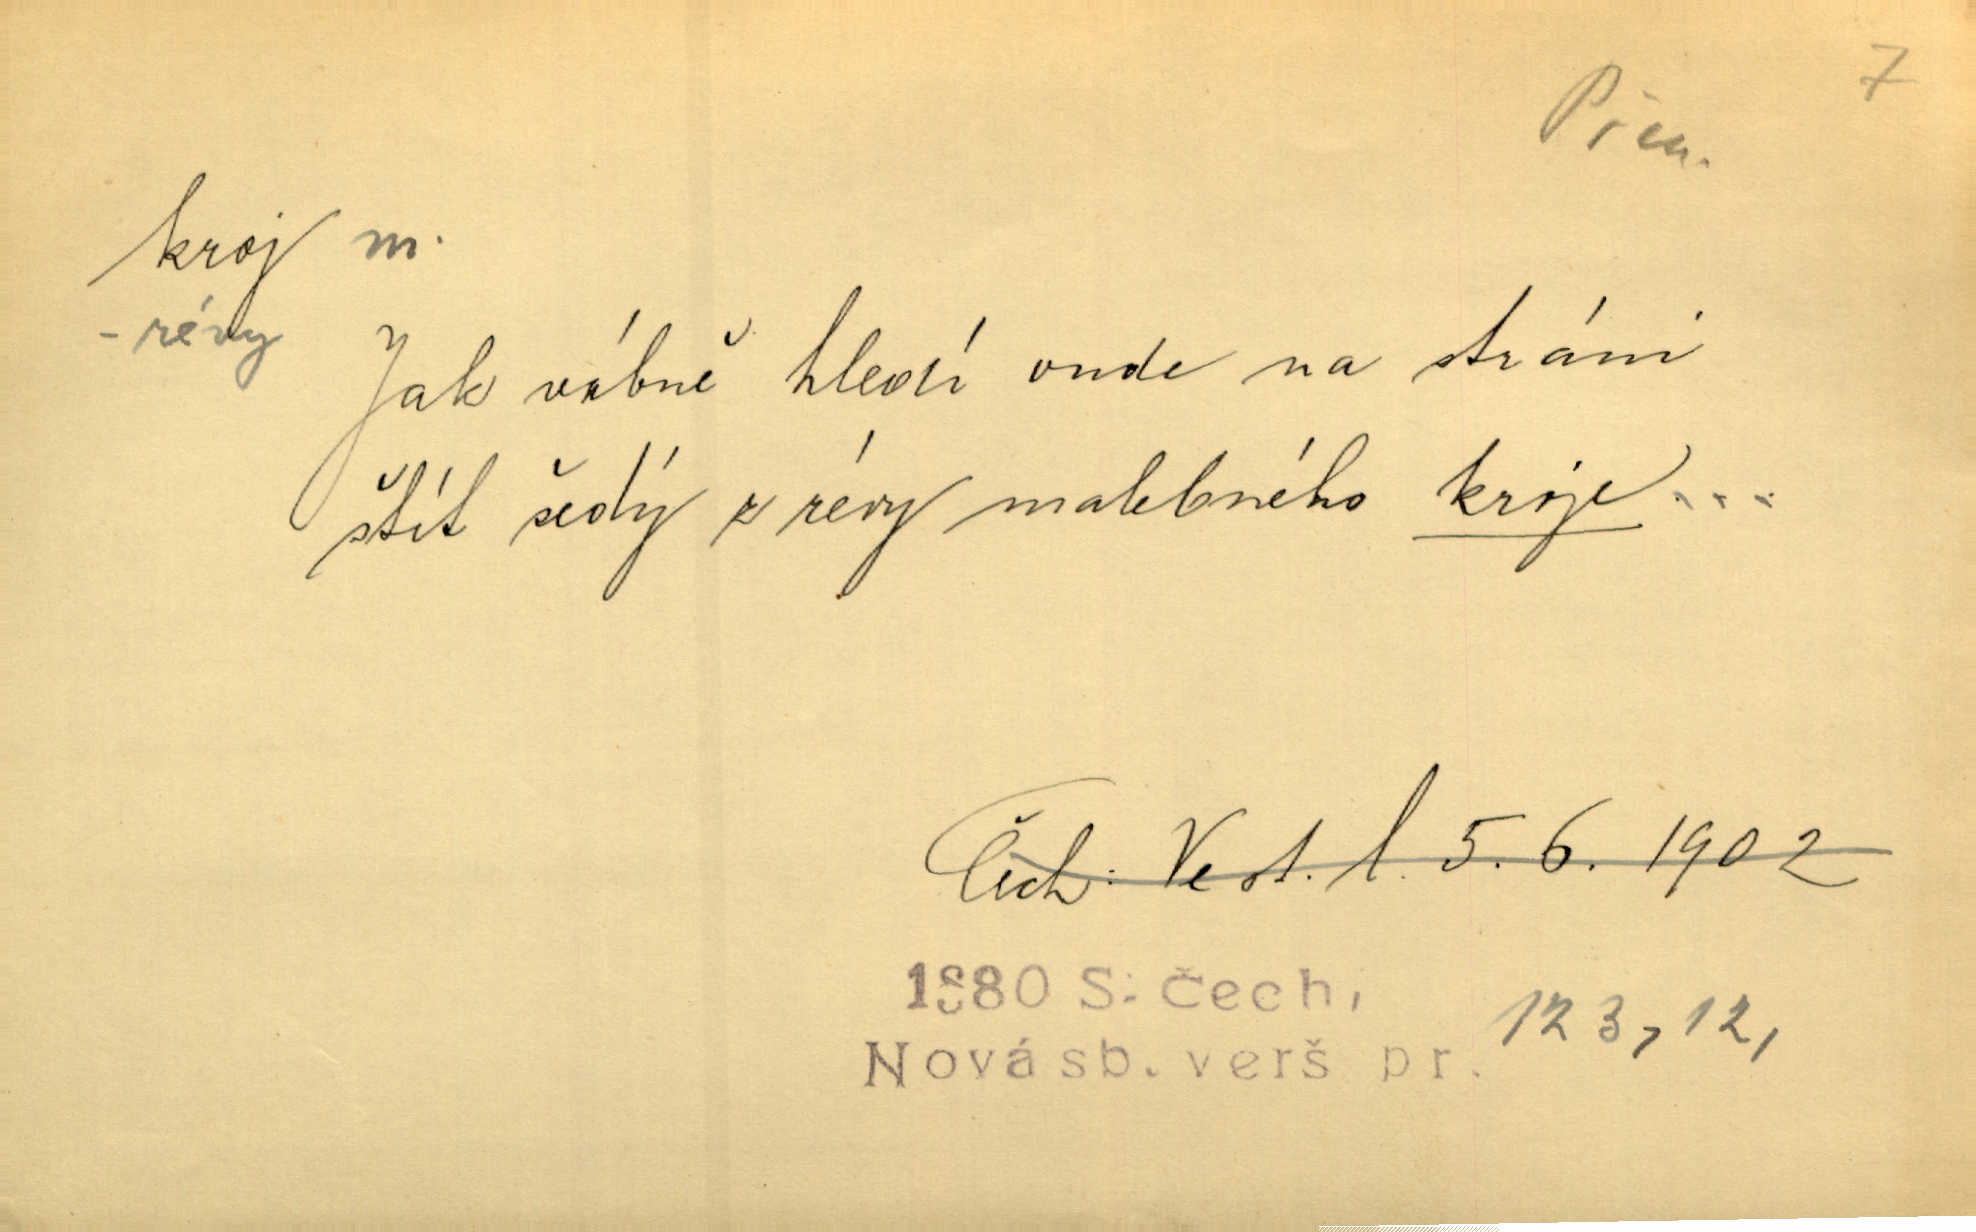 7
Přen.
kroj m.
- révy
Jak vábně hledí onde na stráni
štít šedý z révy malebného kroje...
Čech: Vest. l. 5. 6. 1902
1880 S. Čech,
Nová sb. verš pr. 123, 12,